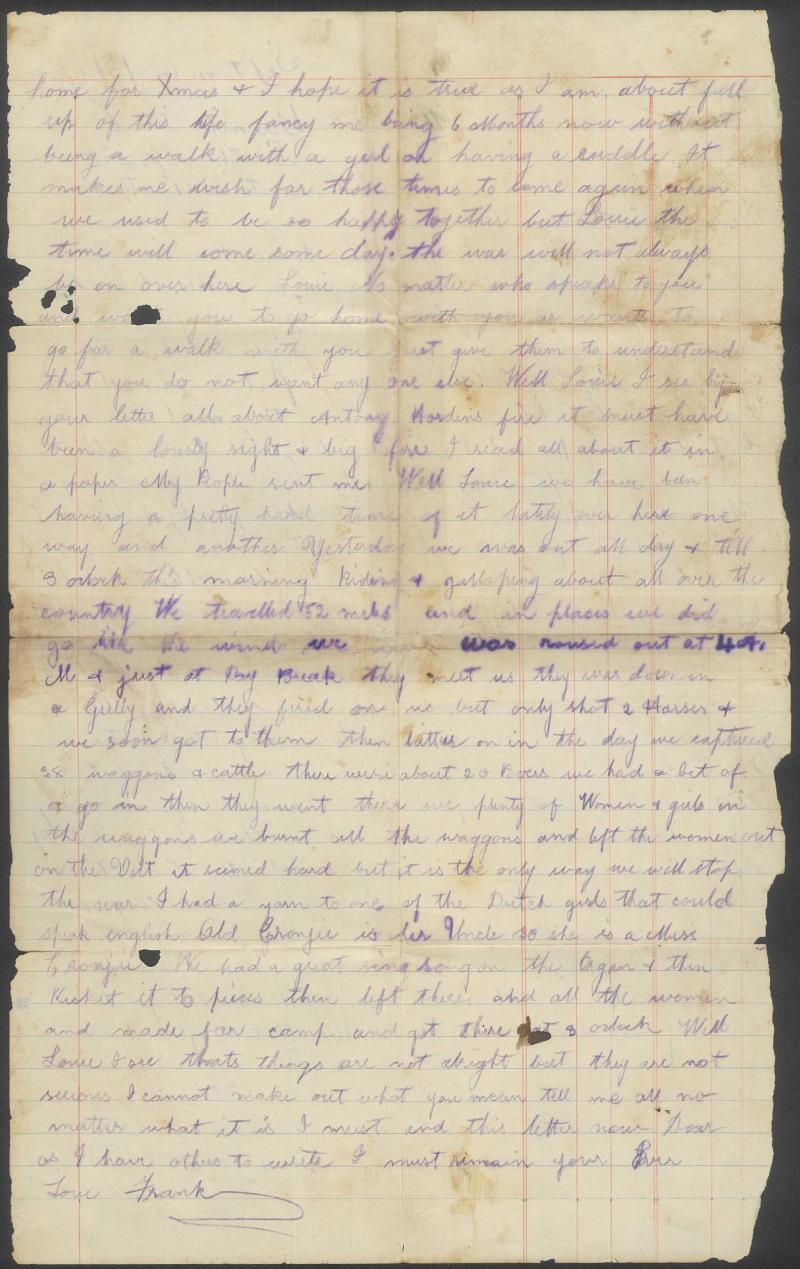 home for Xmas & I hope it is true as I am about full
up of this life fancy me being 6 Months now without
being a walk with a girl or having a cuddle It
makes me wish for those times to come agun when
we used to be so happy together but Louie the
time will come some day. the was will not always
be on over here Louie No matter who speaks to you
and you to go home with you or wants to
go for a walk with you just give them to understand
that you do not want any one else. Well Louie I see by
your letter all about Antony Hordens fire it must have
been a lovely sight & big fire I read all about it in
a paper My People sent me Well Louie we have been
having a pretty hard time of it lately over here one
way and another Yesterday we was out all day & till
3 oclock this morning Riding & galloping about all over the
country We travelled 52 miles and in places we did
go like the wind we was roused out at 4 A.
M & just at Day Break they meet us they was down in
a Gully and they fired on us but only shot 2 Horses &
we soon got to them then latter on in the day we captured
38 waggons & cattle there were about 20 Boers we had a bit of
a go in then they went there we plenty of Women & girls in
the waggons we burnt all the waggons and left the women out
on the Velt it seemed hard but it is the only way we will stop
the war I had a yarn to one of the Dutch girls that could
speak english Old Cronjie is her Uncle so she is a Miss
Cronjie We had a great sing song on the Organ & then
Kicket it to pieces then left there and all the women
and made for camp and got there at 3 oclock Well
Louie I see thats things are not alright but they are not
serious I cannot make out what you mean tell me all no
matter what it is I must end this letter now Dear
as I have others to write I must remain your Ever
Love Frank